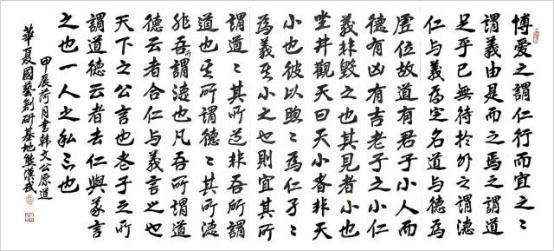 博愛之謂仁行而宜之〻
謂義由是而之焉之謂道
足乎己無待於外之謂德
仁与義為定名道与德為
虛位故道有君子小人而
德有凶有吉老子之小仁
義非毀之也其見者小也
坐井觀天曰天小者非天
小也彼以煦〻為仁孑〻
為義其小之也則宜其所
謂道〻其所道非吾所謂
道也其所謂德〻其所德
非吾所謂德也凡吾所謂道
德云者合仁與義言之也
天下之公言也老子之所
謂道德云者去仁與義言
之也一人之私言也
甲辰荷月書韓文公原道
華夏國藝創研基地熊漢武